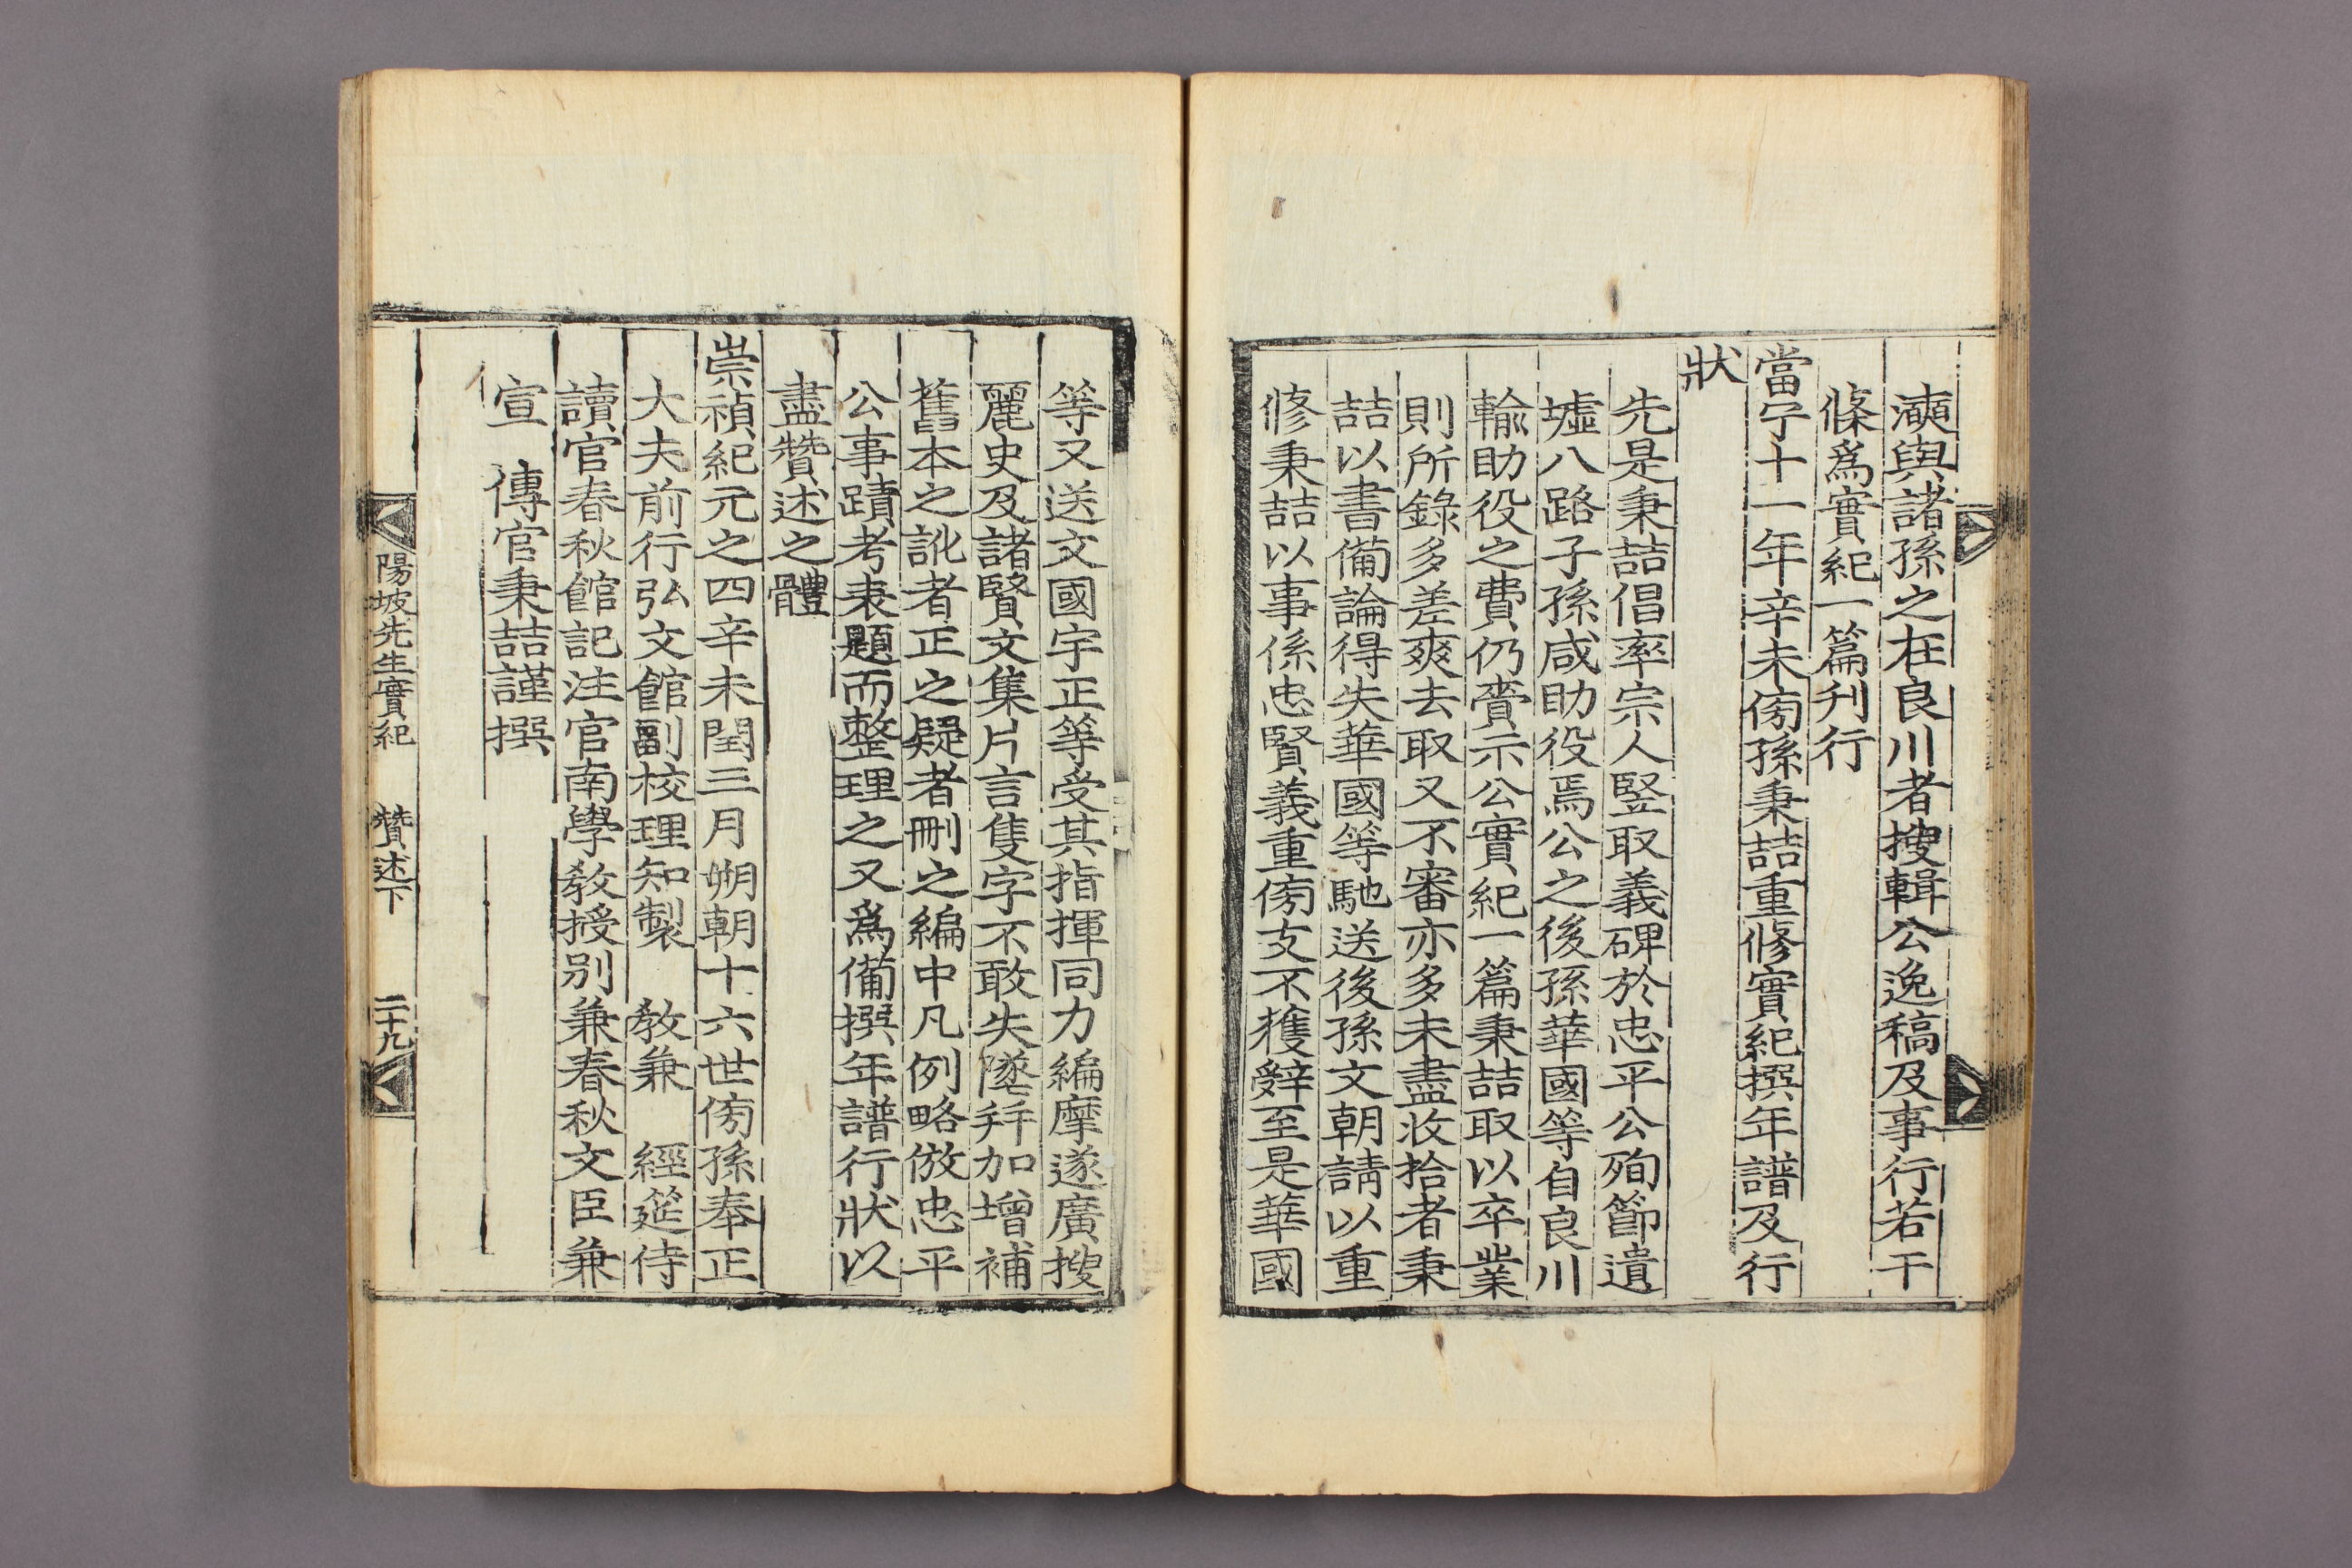 澳與諸孫之在良川者搜輯公逸稿及事行若干
條爲實紀一篇刋行
當宁十一年辛未傍孫秉喆重修實紀撰年譜及行
狀
先是秉喆倡率宗人竪取義碑於忠平公殉節遺
墟八路子孫咸助役焉公之後孫華國等自良川
輸助役之費仍賫示公實紀一篇秉喆取以卒業
則所錄多差爽去取又不審亦多未盡收拾者秉
喆以書備論得失華國等馳送後孫文朝請以重
修秉喆以事係忠賢義重傍支不獲辭至是華國
等又送文國宇正等受其指揮同力編摩遂廣搜
麗史及諸賢文集片言隻字不敢失墜秤加增補
舊本之訛者正之疑者刪之編中凡例略倣忠平
公事蹟考表題而整理之又爲備撰年譜行狀以
盡贊述之體
崇禎紀元之四辛未閏三月朔朝十六世傍孫奉正
大夫前行弘文館副校理知製 敎兼 經筵侍
讀官春秋館記注官南學敎授別兼春秋文臣兼
宣 傳官秉喆謹撰
陽坡先生實紀 贊述下 二十九